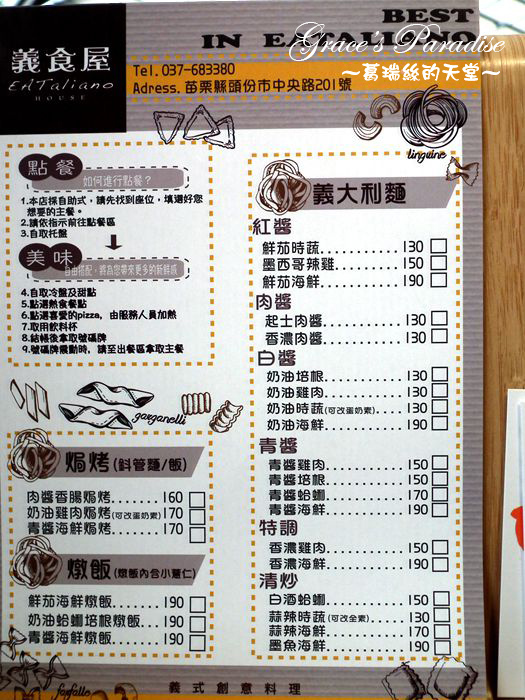 BEST
IN EATALIANO
Grace's Paradise
～葛瑞絲的天堂～
義食屋
EATaliano
HOUSE
Tel. 037-683380
Adress. 苗栗縣頭份市中央路201號
linguine
點餐
如何進行點餐？
1.本店採自助式，請先找到座位，填選好您
想要的主餐。
2.請依指示前往點餐區
3.自取托盤
美味
自由搭配，將為您帶來更多的新鮮感
4.自取冷盤及甜點
5.點選熱食餐點
6.點選喜愛的pizza，由服務人員加熱
7.取用飲料杯
8.結帳後拿取號碼牌
9.號碼牌震動時，請至出餐區拿取主餐
garganelli
焗烤(斜管麵/飯)
肉醬香腸焗烤.......160
奶油雞肉焗烤(可改蛋奶素)170
青醬海鮮焗烤.......170
燉飯(燉飯內含小薏仁)
鮮茄海鮮燉飯.......190
奶油蛤蜊培根燉飯...190
青醬海鮮燉飯.......190
farfalle
義大利麵
紅醬
鮮茄時蔬............130
墨西哥辣雞..........150
鮮茄海鮮............190
肉醬
起士肉醬............130
香濃肉醬............130
白醬
奶油培根............130
奶油雞肉............130
奶油時蔬(可改蛋奶素)....130
奶油海鮮............190
青醬
青醬雞肉............150
青醬培根............150
青醬蛤蜊............170
青醬海鮮............190
特調
香濃雞肉............150
香濃海鮮............190
清炒
白酒蛤蜊............150
蒜辣時蔬(可改全素)......130
蒜辣海鮮............170
墨魚海鮮............190
義式創意料理